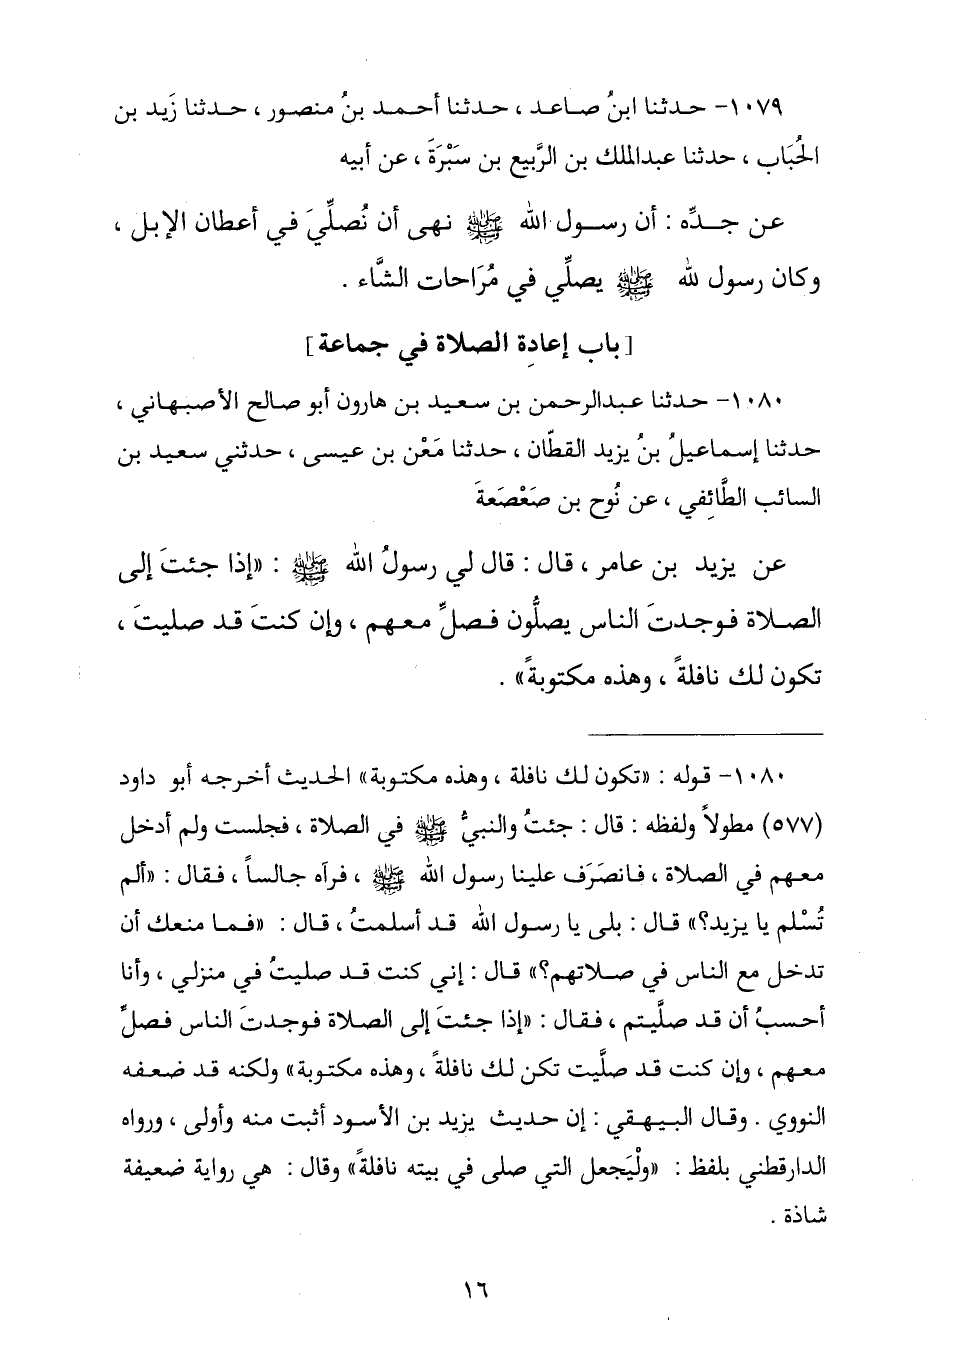 ١٠٧٩- حدثنا ابنُ صاعد ، حدثنا أحمد بنُ منصور ، حدثنا زَيد بن
الحُبَاب ، حدثنا عبدالملك بن الرَّبيع بن سَبْرَةَ ، عن أبيه
عن جدِّه : أن رسول الله ﷺ نهى أن نُصلِّيَ في أعطان الإبل ،
وكان رسول لله ﷺ يصلِّي في مُرَاحات الشَّاء .
[باب إعادة الصلاة في جماعة]
١٠٨٠- حدثنا عبدالرحمن بن سعيد بن هارون أبو صالح الأصبهاني ،
حدثنا إسماعيلُ بنُ يزيد القطَّان ، حدثنا مَعْن بن عيسى ، حدثني سعيد بن
السائب الطَّائِفي ، عن نُوح بن صَعْصَعةَ
عن يزيد بن عامر ، قال : قال لي رسولُ الله ﷺ : «إذا جئتَ إلى
الصلاة فوجدتَ الناس يصلُّون فصلِّ معهم ، وإن كنتَ قد صليتَ ،
تكون لك نافلةً ، وهذه مكتوبةً» .
١٠٨٠- قوله : «تكون لك نافلة ، وهذه مكتوبة» الحديث أخرجه أبو داود
(٥٧٧) مطولاً ولفظه : قال : جئتُ والنبيُّ ﷺ في الصلاة ، فجلست ولم أدخل
معهم في الصلاة ، فانصَرَف علينا رسول الله ﷺ ، فرآه جالساً ، فقال : «ألم
تُسْلم يا يزيد؟» قال : بلى يا رسول الله قد أسلمتُ ، قال : «فما منعك أن
تدخل مع الناس في صلاتهم؟» قال : إني كنت قد صليتُ في منزلي ، وأنا
أحسبُ أن قد صلَّيتم ، فقال : «إذا جئتَ إلى الصلاة فوجدتَ الناس فصلِّ
معهم ، وإن كنت قد صلَّيت تكن لك نافلةً ، وهذه مكتوبة» ولكنه قد ضعفه
النووي . وقال البيهقي : إن حديث يزيد بن الأسود أثبت منه وأولى ، ورواه
الدارقطني بلفظ : «ولْيَجعل التي صلى في بيته نافلةً» وقال : هي رواية ضعيفة
شاذة .
١٦